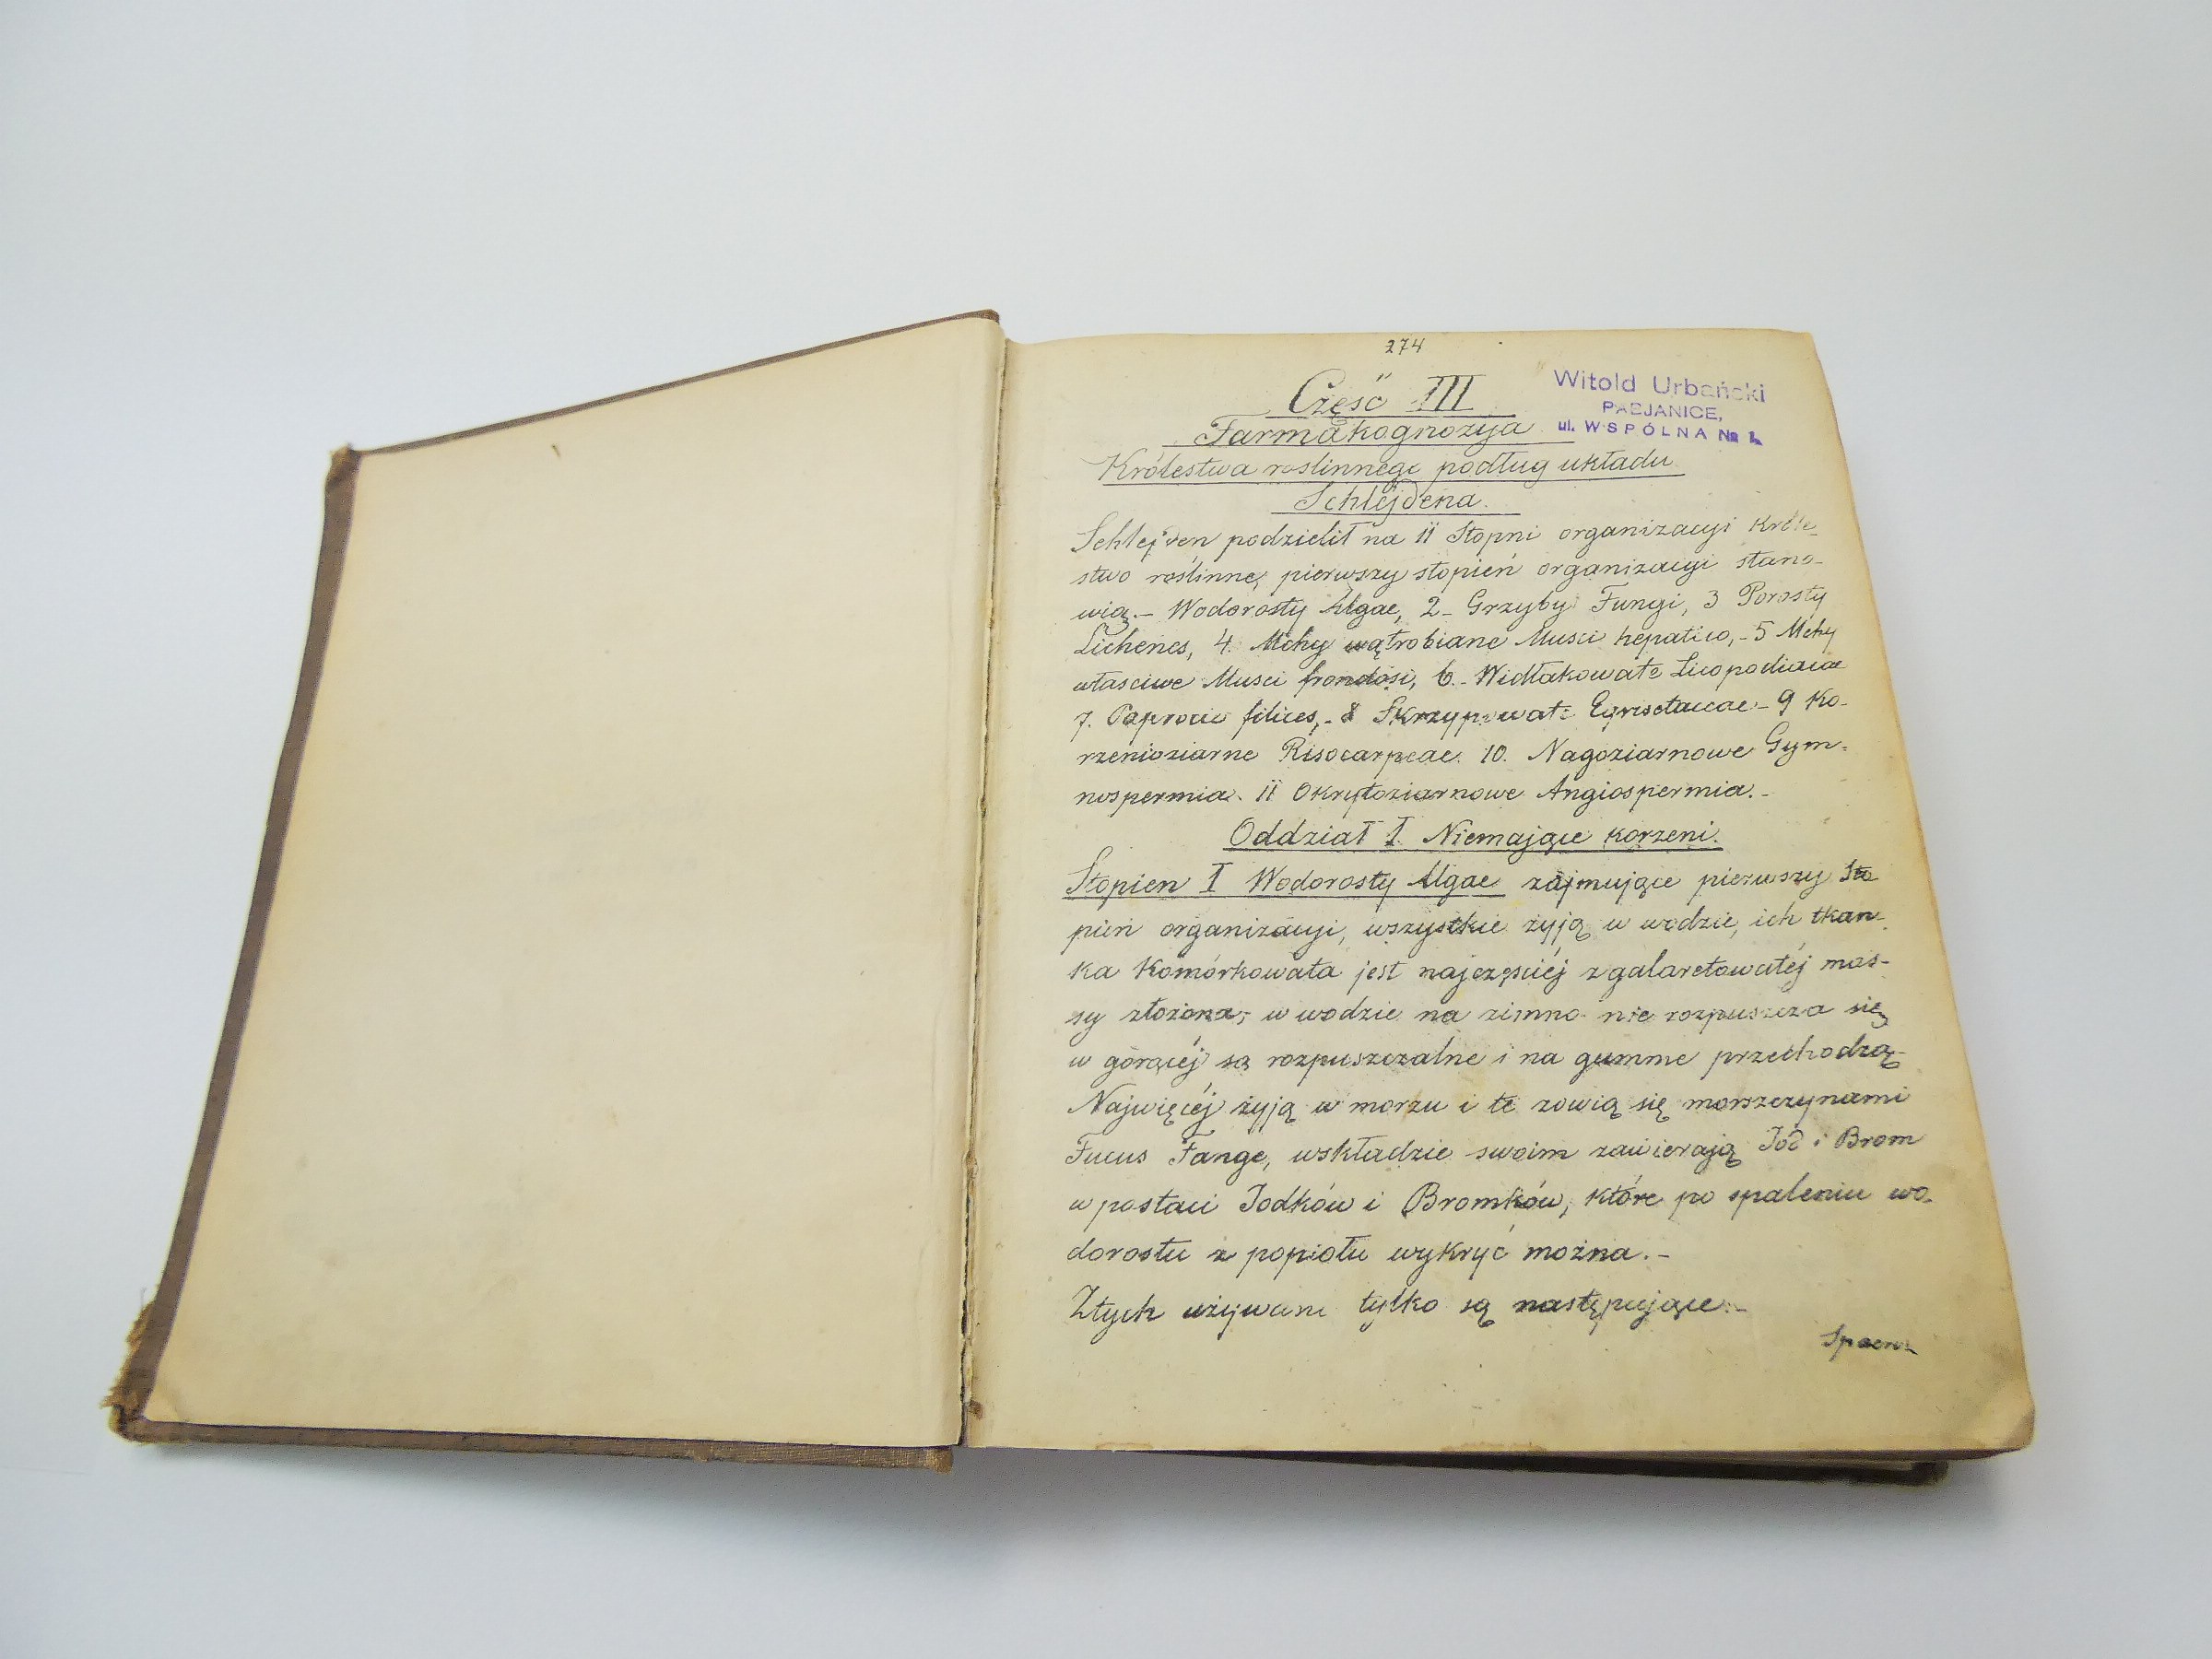 274
Część III
Witold Urbański
PABJANICE,
ul. WSPÓLNA № 1.
Farmakognozya
Królestwa roslinnego podług układu
Schlejdena.
Schlejden podzielił na 11 Stopni organizacyi Króle-
stwo roślinne, pierwszy stopień organizacyi stano-
wią.- Wodorosty Algae, 2- Grzyby Fungi, 3 Porosty
Lichenes, 4. Mchy wątrobiane Musci hepatico,- 5 Mchy
własciwe Musci frondosi, 6.- Widłakowate Licopodiacae
7. Paprocie filices,- 8 Skrzypowate Eqvisetaceae- 9 Ko-
rzenioziarne Risocarpeae. 10. Nagoziarnowe Gym-
nospermia. 11 Okrytoziarnowe Angiospermia.-
Oddział 1. Niemające korzeni.
Stopien I Wodorosty Algae zajmujące pierwszy Sto
pień organizacyi, wszystkie żyją w wodzie, ich tkan-
ka Komórkowata jest najczęściéj z galaretowatéj mas-
sy złożona, w wodzie na zimno nie rozpuszcza się,
w gorącéj są rozpuszczalne i na gumme przechodzą.-
Najwięcéj żyją w morzu i te zowią się morszczynami
Fucus Tange, wskładzie swoim zawierają Jod i Brom
w postaci Jodków i Bromków, które po spaleniu wo-
dorostu z popiołu wykryć można.-
Ztych używane tylko są następujące.-